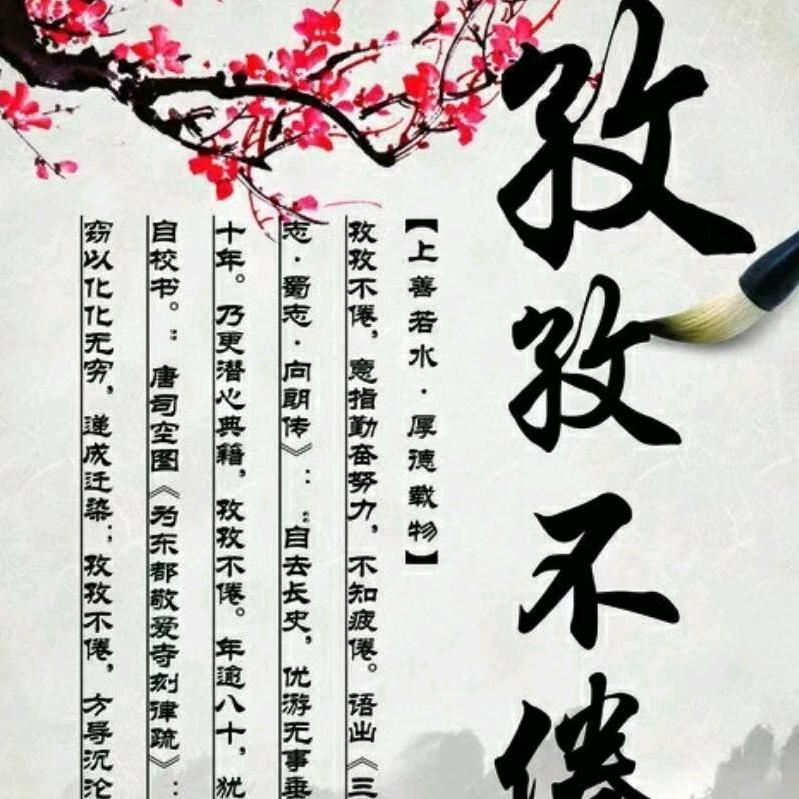 孜孜不倦
【上善若水·厚德载物】
孜孜不倦，意指勤奋努力，不知疲倦。语出《三
志·蜀志·向朗传》：“自去长史，优游无事垂
十年。乃更潜心典籍，孜孜不倦。年逾八十，犹
自校书。”唐司空图《为东都敬爱寺刻律疏》：
窃以化化无穷，递成迁染；孜孜不倦，方导沉沦